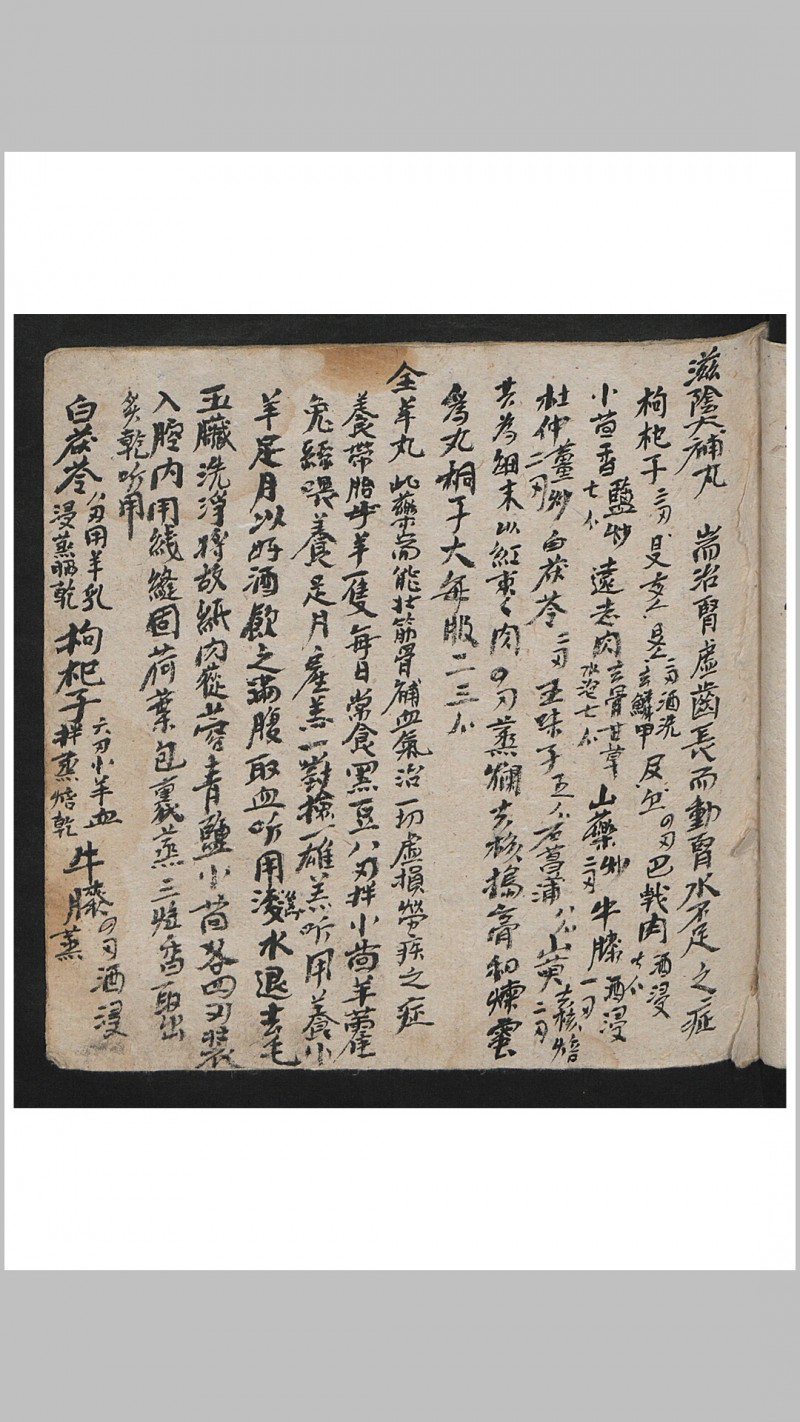 滋陰大補丸 耑治腎虛齒長而動腎水不足之症
枸杞子二刃 二刃酒洗去鱗甲 の刃巴戟肉酒浸七卜
小茴香塩炒七卜 遠志肉去骨甘草水泡七卜 山藥炒二刃 牛膝酒浸一刃
杜仲薑炒二刃 白茯苓二刃 五味子五卜 石菖蒲八卜 山萸去核焙二刃
共為細末以紅棗肉の刃蒸爛去核搗膏和煉蜜
為丸桐子大每服二三卜
全羊丸 此藥耑能壯筋骨補血氣治一切虛損勞疾之症
養帶胎母羊一隻每日常食黑豆八刃拌小茴羊藿
兔絲喂養足月產羔一對撿一雄羔听用養小
羊足月以好酒飲之滿腹取血听用滚水退去毛
五臟洗淨將故紙肉蓯蓉青鹽小茴各四刃裝
入腔內用綫縫固荷葉包裹蒸三炷香取出
炙乾听用
白茯苓 刃用羊乳浸蒸晒乾 枸杞子六刃小羊血拌蒸焙乾 牛膝の刃酒浸蒸